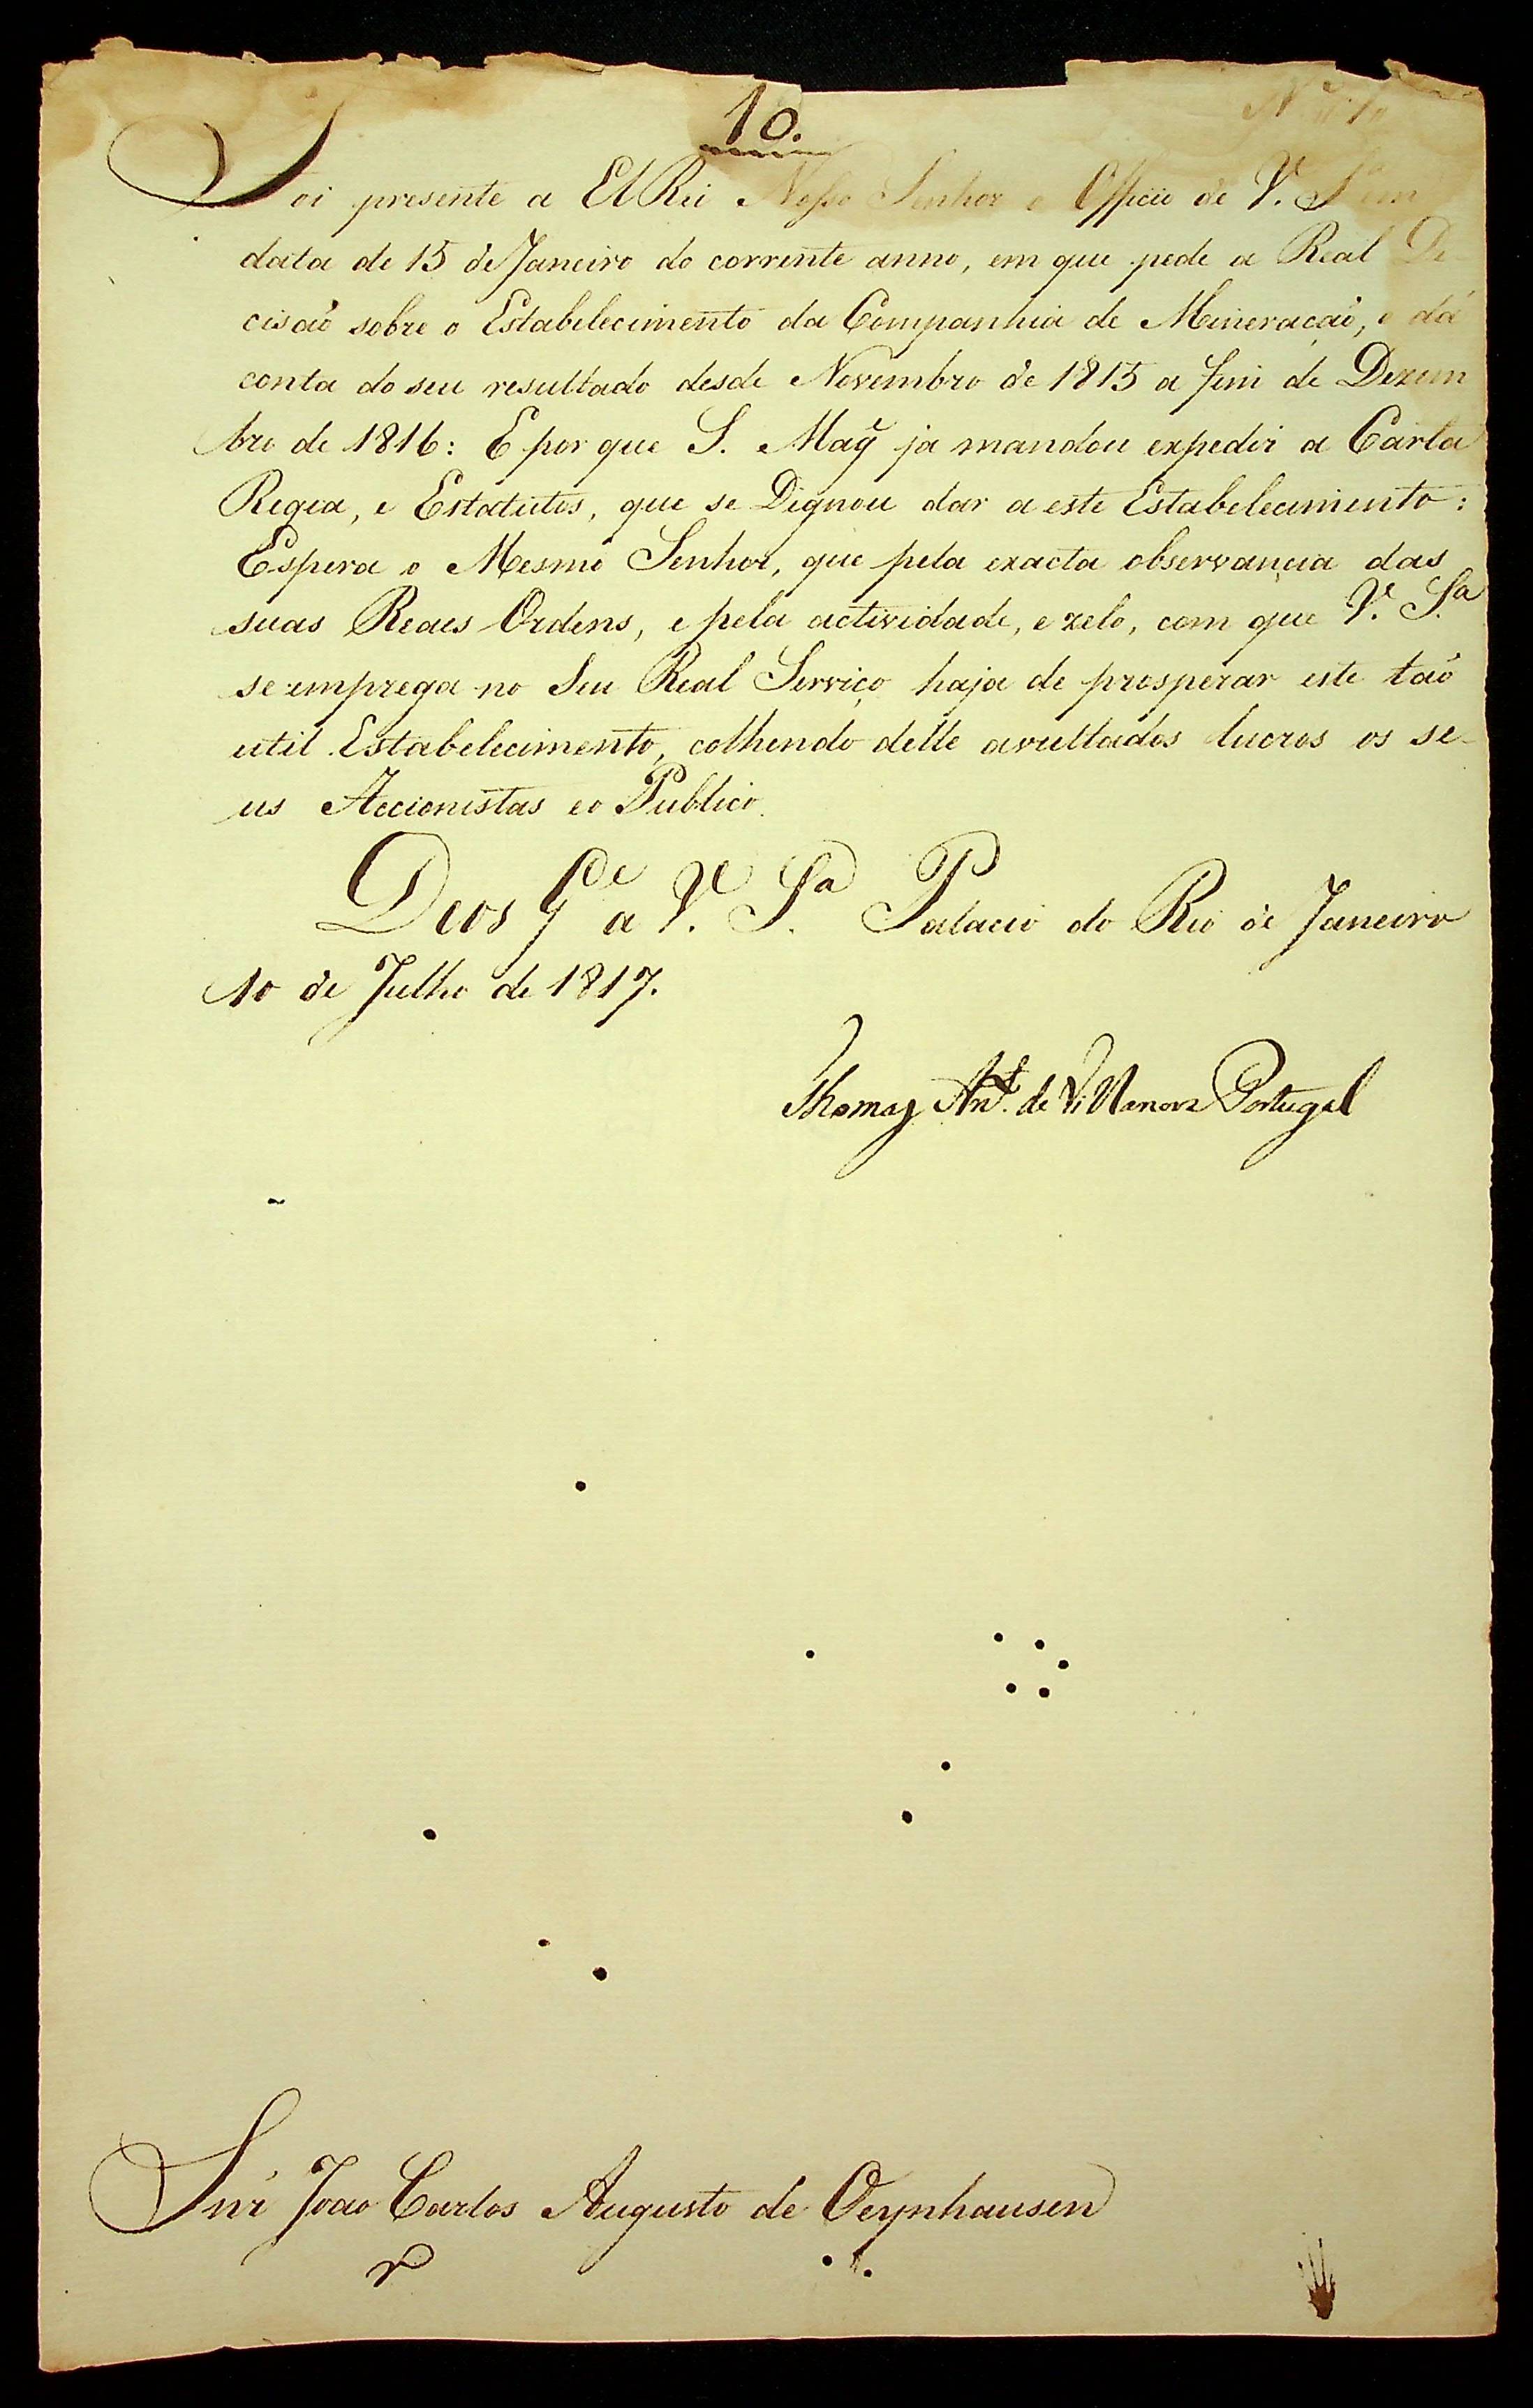 10.
Foi presente a El Rei Nosso Senhor o Officio de V. Sª em
data de 15 de Janeiro do corrente anno, em que pede a Real De
cisaõ sobre o Estabelecimento da Companhia de Mineraçaõ, e dá
conta do seu resultado desde Novembro de 1815 a fim de Dezem
bro de 1816: E por que S. Magᵉ ja mandou expedir a Carta
Regia, e Estatutos, que se Dignou dar a este Estabelecimento:
Espera o Mesmo Senhor, que pela exacta observancia das
suas Reaes Ordens, e pela actividade, e zelo, com que V. Sª
se emprega no Seu Real Serviço haja de prosperar este taõ
util Estabelecimento, colhendo delle avultados lucros os se-
us Accionistas e o Publico.
Deos gᵈᵉ a V. Sª Palacio do Rio de Janeiro
10 de Julho de 1817.
Thomaz Antº. de Villanova Portugal
Snr̃ Joao Carlos Augusto de Oeynhausen